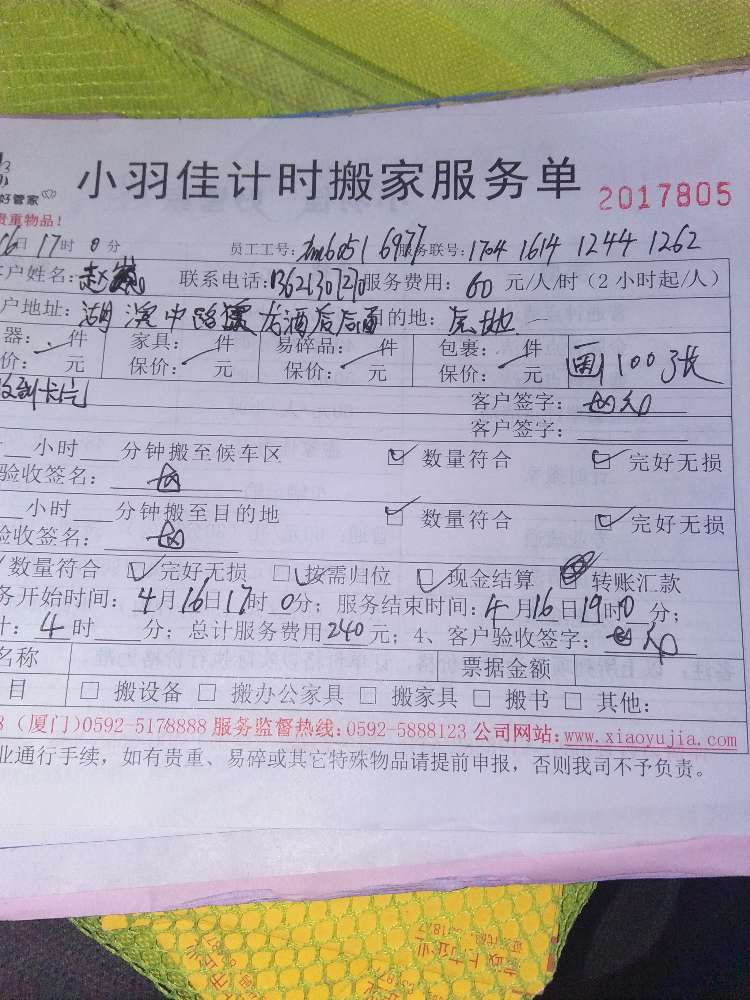 小羽佳计时搬家服务单 2017805
好管家
贵重物品！
16日17时0分 员工工号: 服务联号:1704 1614 1244 1262
客户姓名:赵 联系电话: 服务费用: 60 元/人/时（2小时起/人）
户地址: 湖滨中路 酒店后面 目的地:
器: 件 家具: 件 易碎品: 件 包裹: 件 画1100 3张
价: 元 保价: 元 保价: 元 保价: 元
收到卡片 客户签字:
客户签字:
小时 分钟搬至候车区 数量符合 完好无损
验收签名:
小时 分钟搬至目的地 数量符合 完好无损
验收签名:
数量符合 完好无损 按需归位 现金结算 转账汇款
务开始时间: 4月16日17时0分；服务结束时间: 4月16日19时0分；
计: 4时 分；总计服务费用240元；4、客户验收签字:
名称 票据金额
目 搬设备 搬办公家具 搬家具 搬书 其他:
8（厦门)0592-5178888 服务监督热线:0592-5888123 公司网站:www.xiaoyujia.com
业通行手续，如有贵重、易碎或其它特殊物品请提前申报，否则我司不予负责。